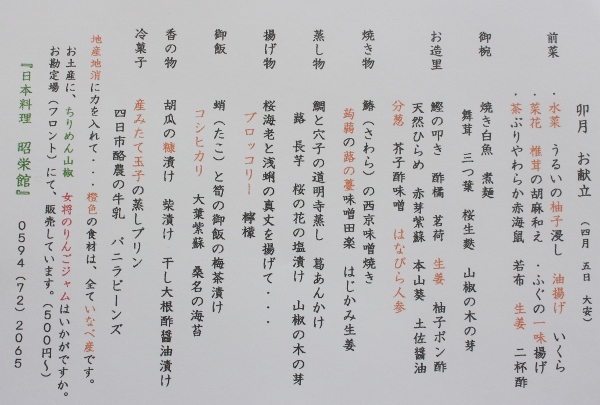 卯月 お献立 (四月 五日 大安)
前菜 ・水菜 うるいの柚子浸し 油揚げ いくら
・菜花 椎茸の胡麻和え ・ふぐの一味揚げ
・茶ぶりやわらか赤海鼠 若布 生姜 二杯酢
御椀 焼き白魚 煮麺
舞茸 三つ葉 桜生麩 山椒の木の芽
お造里 鰹の叩き 酢橘 茗荷 生姜 柚子ポン酢
天然ひらめ 赤芽紫蘇 本山葵 土佐醤油
分葱 芥子酢味噌 はなびら人参
焼き物 鰆(さわら)の西京味噌焼き
蒟蒻の蕗の薹味噌田楽 はじかみ生姜
蒸し物 鯛と穴子の道明寺蒸し 葛あんかけ
蕗 長芋 桜の花の塩漬け 山椒の木の芽
揚げ物 桜海老と浅蜊の真丈を揚げて・・・
ブロッコリー 檸檬
御飯 蛸(たこ)と筍の御飯の梅茶漬け
コシヒカリ 大葉紫蘇 桑名の海苔
香の物 胡瓜の糠漬け 柴漬け 干し大根酢醤油漬け
冷菓子 産みたて玉子の蒸しプリン
四日市酪農の牛乳 バニラビーンズ
地産地消に力を入れて・・・橙色の食材は、全ていなべ産です。
お土産に、ちりめん山椒 女将のりんごジャムはいかがですか。
お勘定場(フロント)にて、販売しています。(500円~)
『日本料理 昭栄館』 0594(72)2065